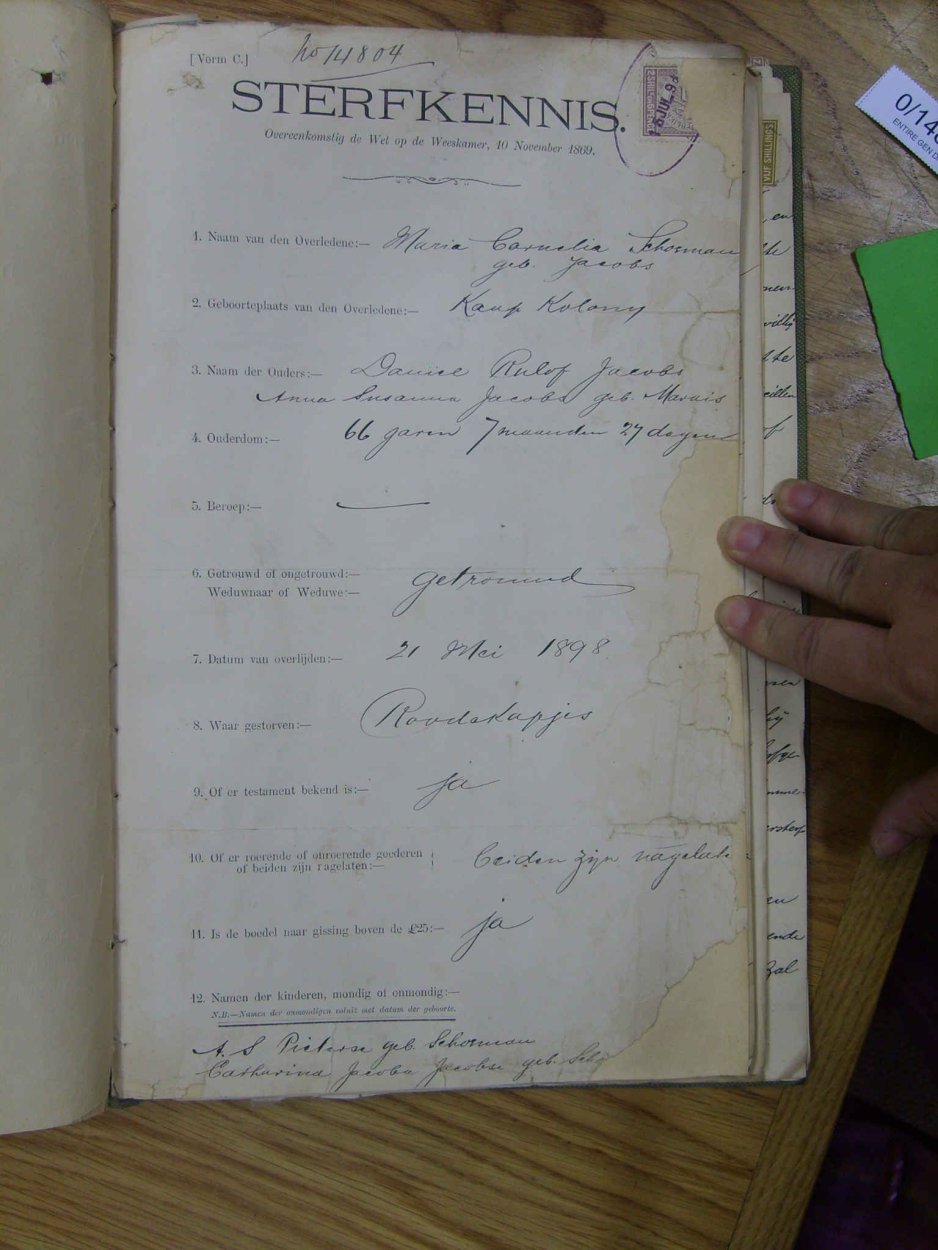 [Vorm C.]
No 14804
STERFKENNIS.
Overeenkomstig de Wet op de Weeskamer, 10 November 1869.
1. Naam van den Overledene:— Maria Cornelia Schosman
geb. Jacobs
2. Geboorteplaats van den Overledene:— Kaap Kolony
3. Naam der Ouders:— Daniel Rulof Jacobs
Anna Susanna Jacobs geb. Marais
4. Ouderdom:— 66 jaren 7 maanden 27 dagen
5. Beroep:—
6. Getrouwd of ongetrouwd:— getrouwd
Weduwnaar of Weduwe:—
7. Datum van overlijden:— 21 Mei 1898
8. Waar gestorven:— Roodekopjes
9. Of er testament bekend is:— ja
10. Of er roerende of onroerende goederen
of beiden zijn nagelaten:— beiden zijn nagelat
11. Is de boedel naar gissing boven de £25:— ja
12. Namen der kinderen, mondig of onmondig:—
N.B.—Namen der onmondigen voluit met datum der geboorte.
A. S Pieterse geb. Schosman
Catharina Jacoba Jacobse geb. Sch
JUL 98
VIJF SHILLINGS
0/14
ENTIRE GEN D
en
ste
of
ende
zal